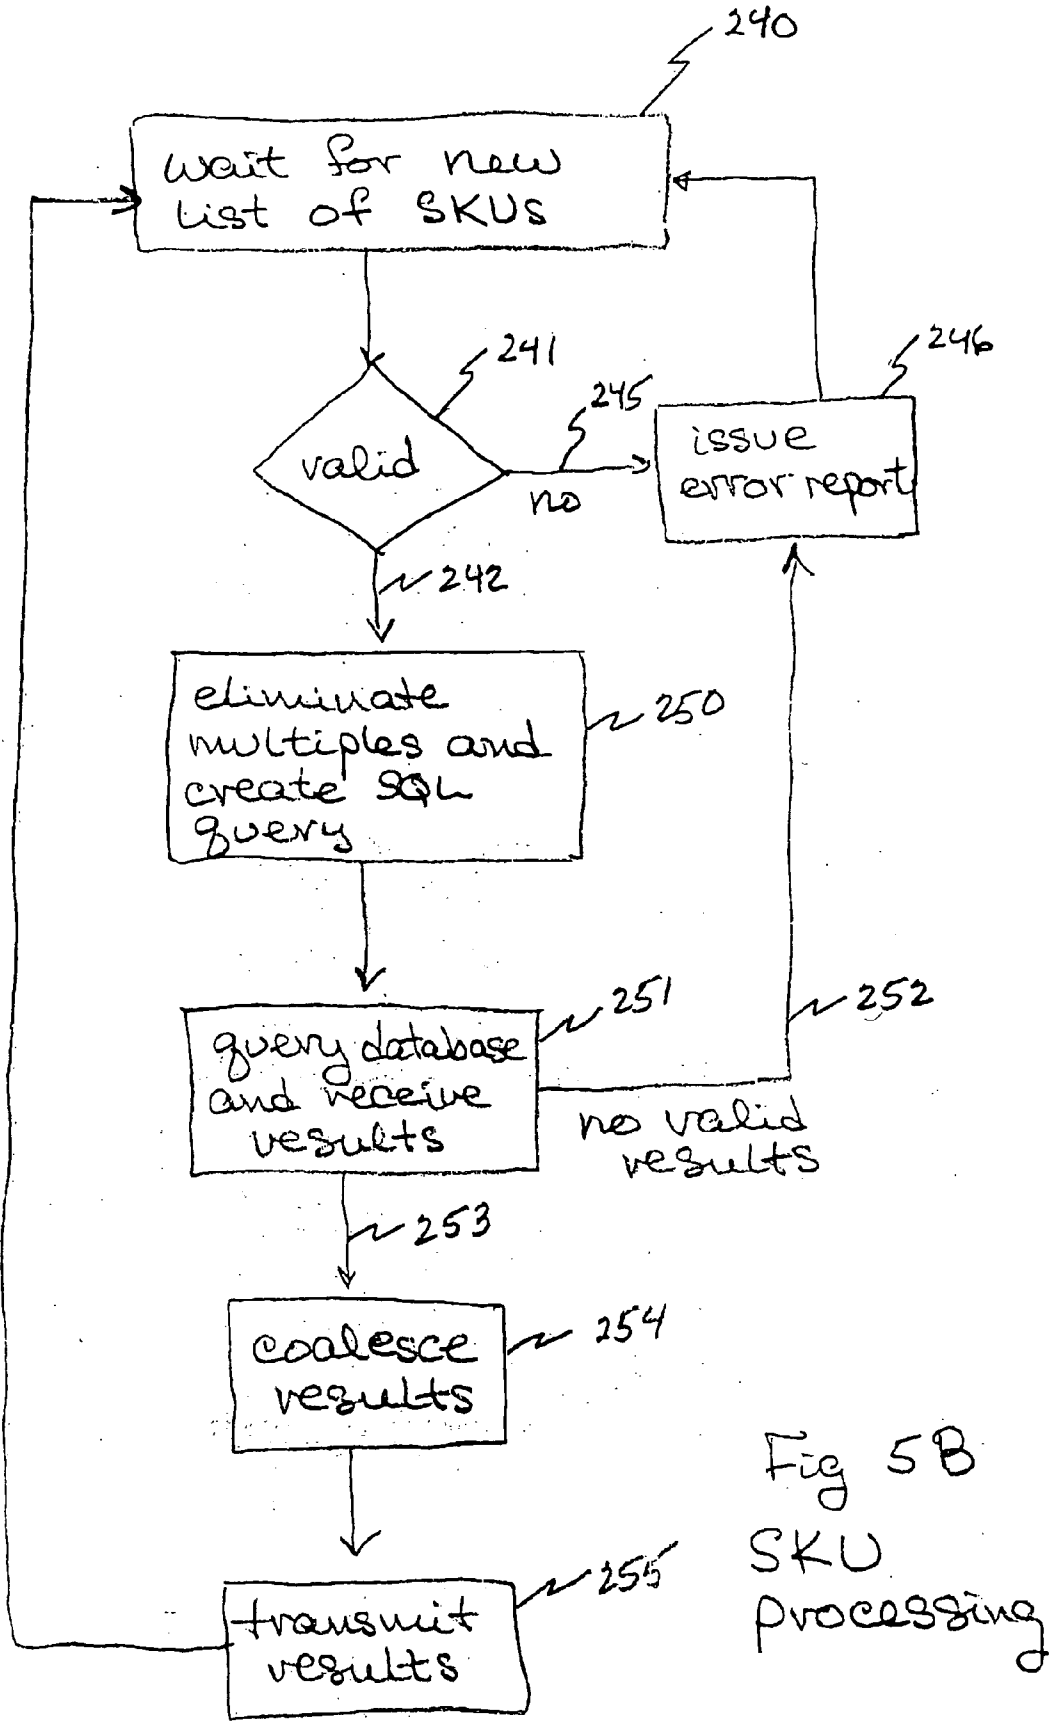 240
wait for new
list of SKUs
241
valid
245
no
246
issue
error report
242
eliminate
multiples and
create SQL
query
250
251
query database
and receive
results
252
no valid
results
253
coalesce
results
254
Fig 5B
SKU
processing
255
transmit
results